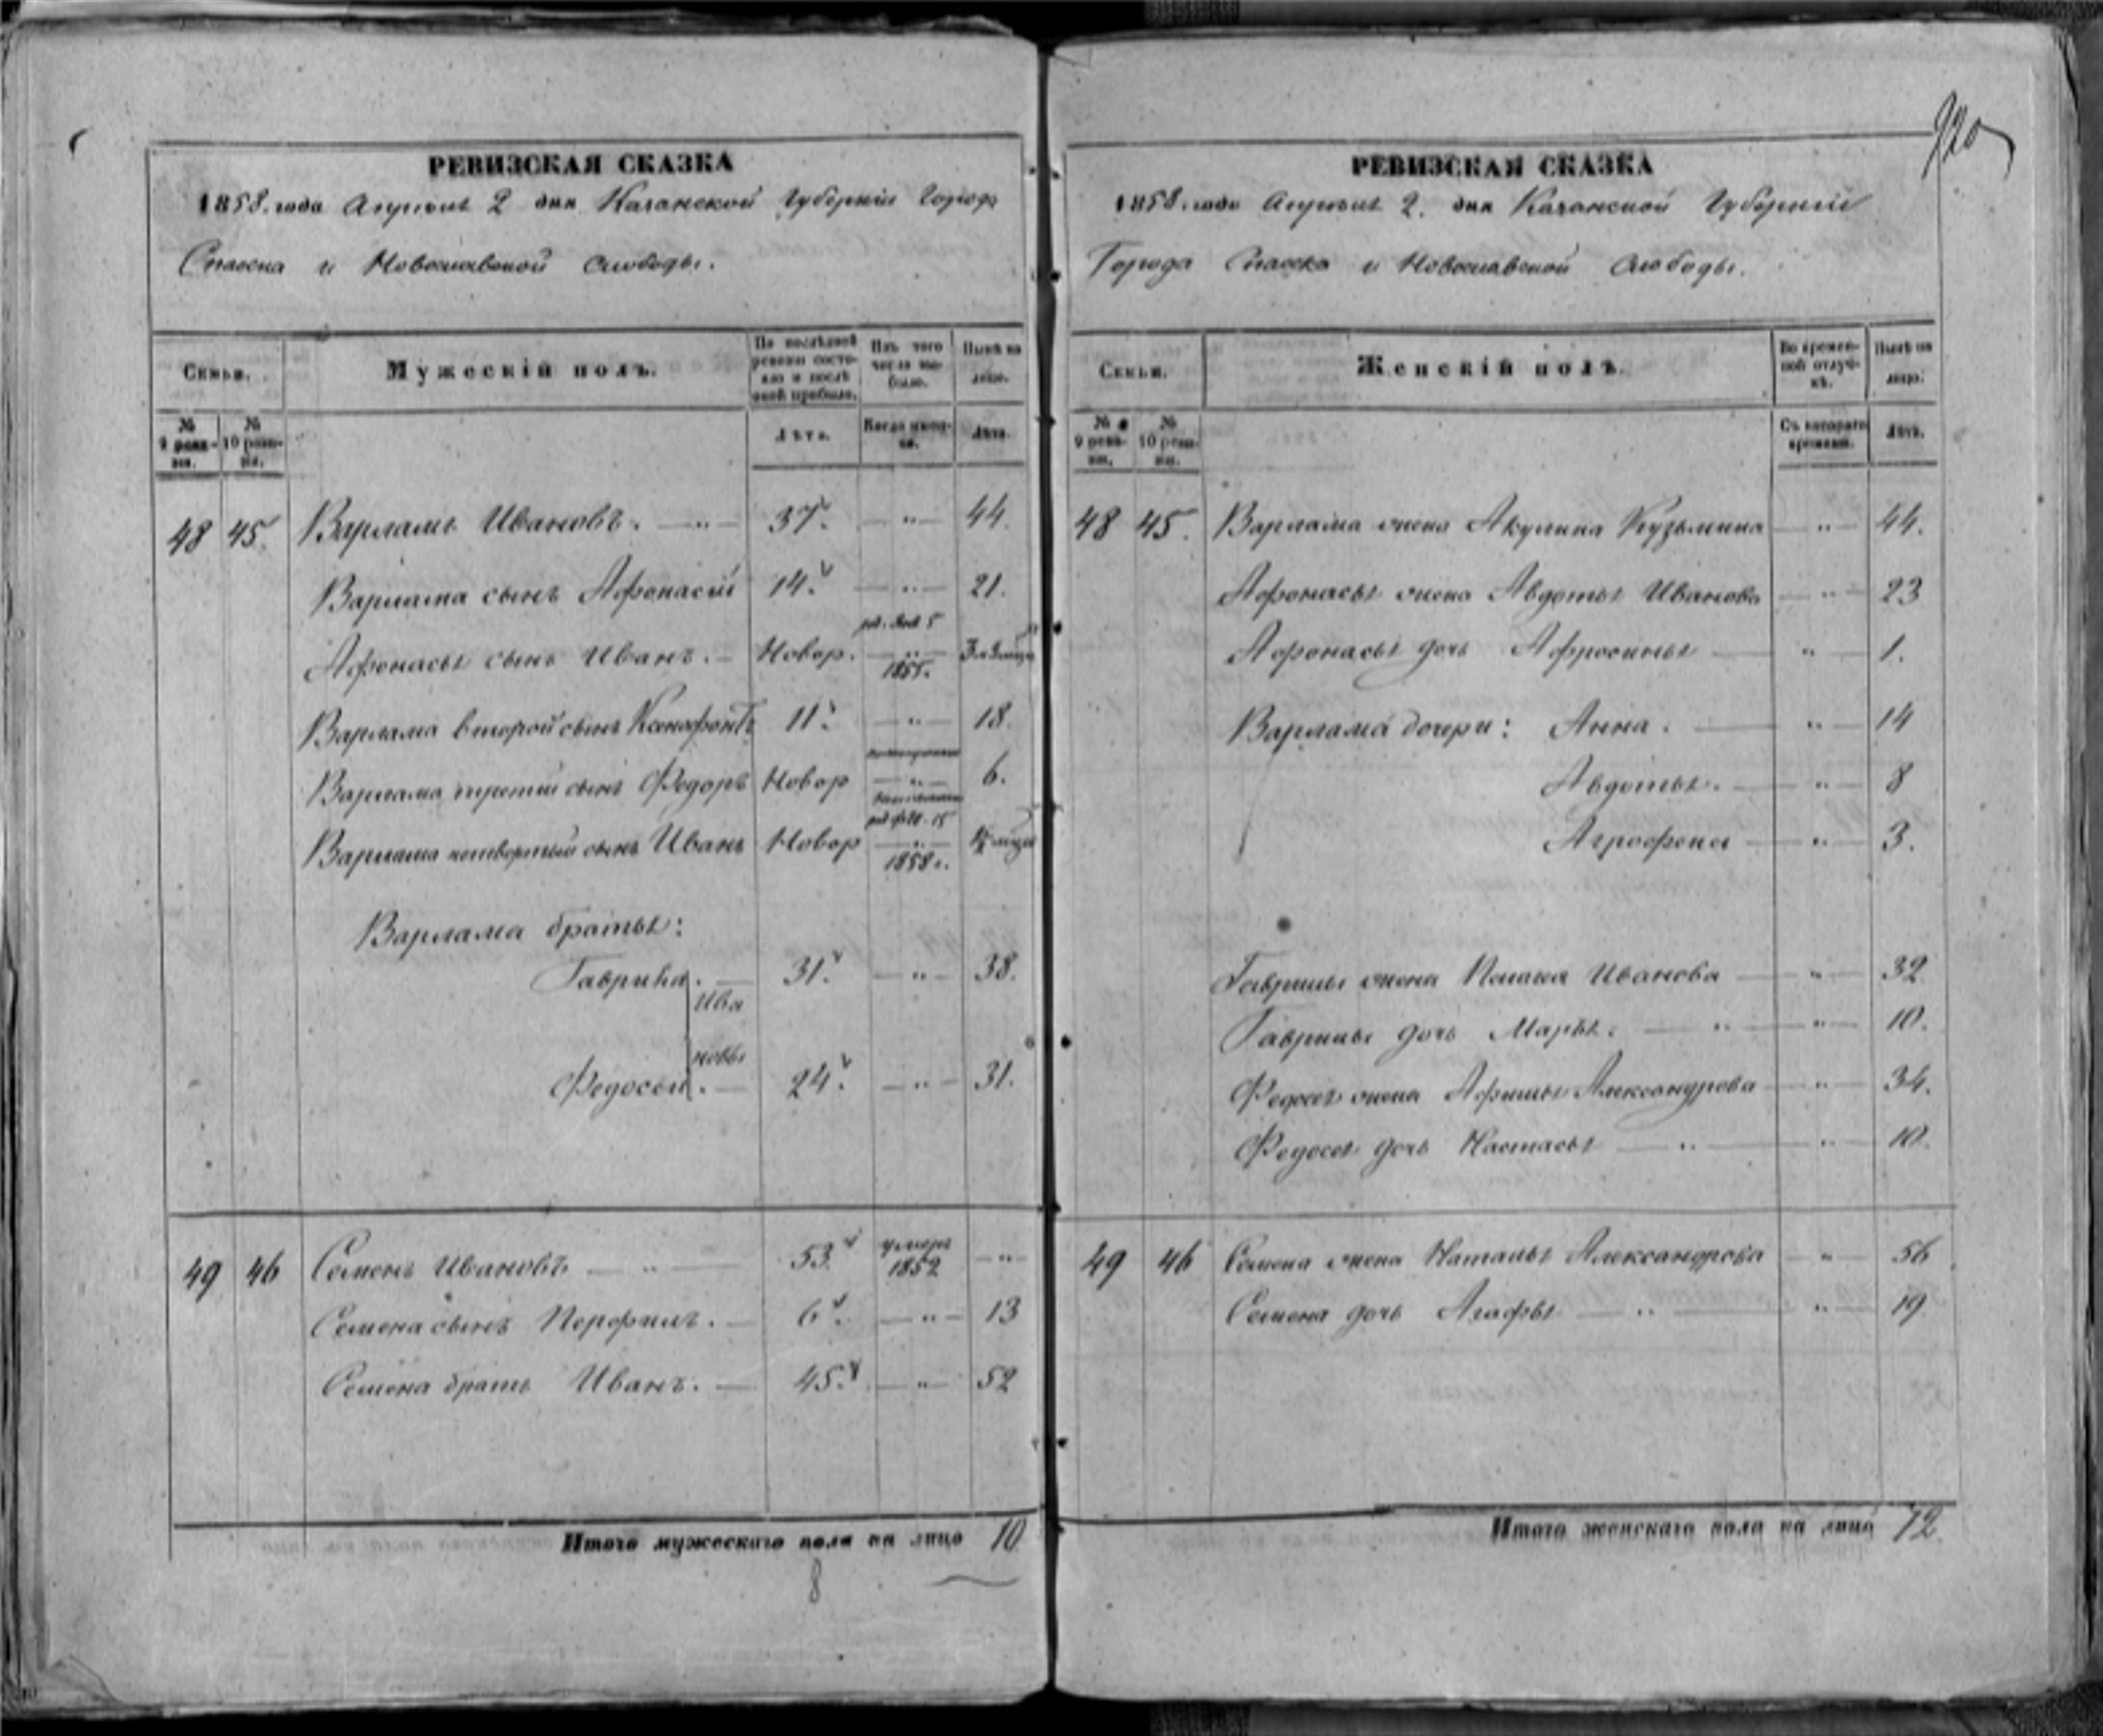 920
РЕВИЗСКАЯ СКАЗКА
1858. года Апреля 2 дня Казанской Губерніи Города
Спасска и Новоспасской Слободы.
Семьи.
Мужескій полъ.
По послѣдней ревизіи состояло и послѣ оной прибыло.
Изъ того числа выбыло.
Нынѣ на лицо.
№ 9 ревизіи.
№ 10 ревизіи.
Лѣта.
Когда именно.
Лѣта.
48 45. Варламъ Ивановъ. — „ — 37. — „ — 44.
Варлама сынъ Афонасій 14. — „ — 21.
Афонасья сынъ Иванъ. — Новор. 1855.
Варлама второй сынъ Ксенофонтъ 11. — „ — 18.
Варлама третій сынъ Федоръ Новор — „ — 6.
Варлама четвертый сынъ Иванъ Новор 1858 г.
Варлама братья:
Гаврила. — 31. — „ — 38.
Ива
новы
Федосей. — 24. — „ — 31.
49 46 Семенъ Ивановъ — „ — 53. умеръ 1852 — „
Семена сынъ Перфилъ. — 6. — „ — 13
Семена братъ Иванъ. — 45. — „ — 52
Итого мужескаго пола на лицо 10
8
РЕВИЗСКАЯ СКАЗКА
1858. года Апреля 2. дня Казанской Губерніи
Города Спасска и Новоспасской Слободы.
Семьи.
Женскій полъ.
Во временной отлучкѣ.
Нынѣ на лицо.
№ 9 ревизіи.
№ 10 ревизіи.
Съ котораго времени.
Лѣта.
48 45. Варлама жена Акулина Кузьмина — „ — 44.
Афонасья жена Авдотья Иванова — „ — 23
Афонасья дочь Афросинья — „ — 1.
Варлама дочери: Анна. — „ — 14
Авдотья. — „ — 8
Агрофена — „ — 3.
Гаврилы жена Иванова — „ — 32
Гаврилы дочь Марья. — „ — „ — 10.
Федосея жена Афимья Александрова — „ — 34.
Федосея дочь Настасья — „ — „ — 10.
49 46 Семена жена Наталья Александрова — „ — 56
Семена дочь Агафья — „ — „ — 19
Итого женскаго пола на лицо 12.